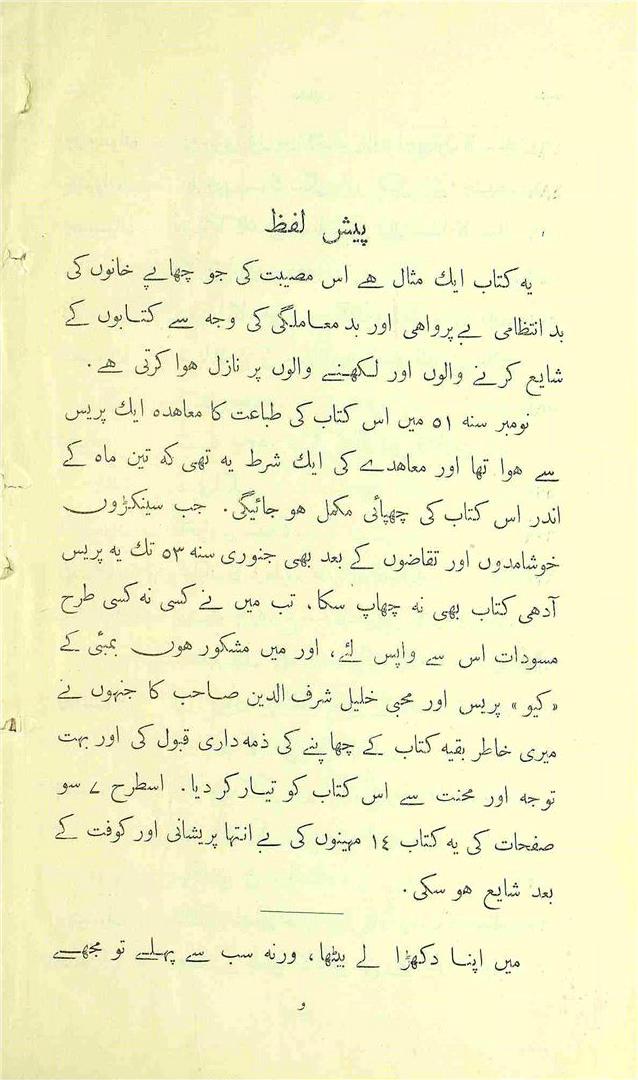 پیش لفظ
یہ کتاب ایک مثال ہے اس مصیبت کی جو چھاپے خانوں کی
بد انتظامی بے پرواہی اور بد معاملگی کی وجہ سے کتابوں کے
شایع کرنے والوں اور لکھنے والوں پر نازل ہوا کرتی ہے.
نومبر سنہ ۵۱ میں اس کتاب کی طباعت کا معاہدہ ایک پریس
سے ہوا تھا اور معاہدے کی ایک شرط یہ تھی کہ تین ماہ کے
اندر اس کتاب کی چھپائی مکمل ہو جائیگی. جب سینکڑوں
خوشامدوں اور تقاضوں کے بعد بھی جنوری سنہ ۵۳ تک یہ پریس
آدھی کتاب بھی نہ چھاپ سکا، تب میں نے کسی نہ کسی طرح
مسودات اس سے واپس لئے، اور میں مشکور ہوں بمبئی کے
«کیو» پریس اور محبی خلیل شرف الدین صاحب کا جنہوں نے
میری خاطر بقیہ کتاب کے چھاپنے کی ذمہ داری قبول کی اور بہت
توجہ اور محنت سے اس کتاب کو تیار کر دیا. اسطرح ۷ سو
صفحات کی یہ کتاب ۱۴ مہینوں کی بے انتہا پریشانی اور کوفت کے
بعد شایع ہو سکی.
میں اپنا دکھڑا لے بیٹھا، ورنہ سب سے پہلے تو مجھے
و